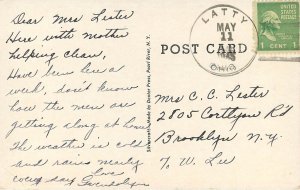 Dear Mrs Lester
Here with mother
helping clean,
Have been here a
week, don't know
how the men are
getting along at home
The weather is cold
and rains nearly
every day Love
Gwendolyn
POST CARD
LATTY
MAY
11
OHIO
1 CENT 1
Mrs C. C. Lester
2805 Cortlyou Rd
Brooklyn N.Y.
% W. Lee